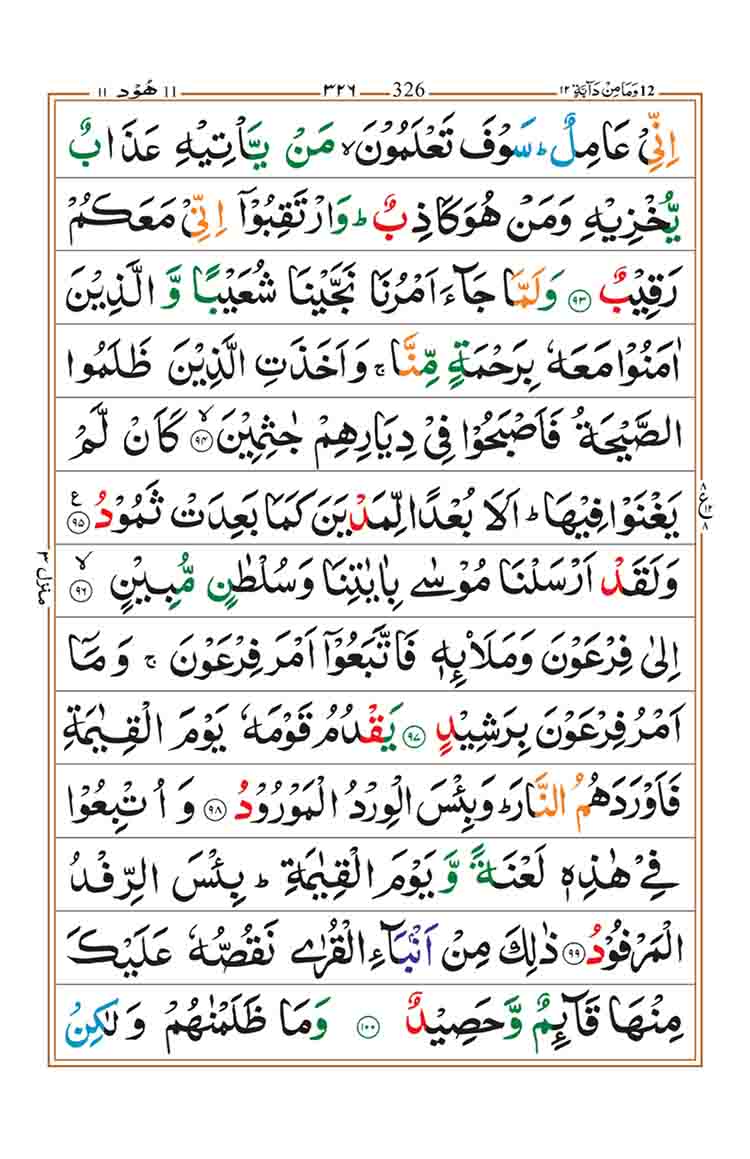 12 وَمَا مِنْ دَآبَّةٍ ١٢ 326 ٣٢٦ 11 هُوْد ١١
اِنِّيْ عَامِلٌ ؕ سَوْفَ تَعْلَمُوْنَ ۙ مَنْ يَّاْتِيْهِ عَذَابٌ
يُّخْزِيْهِ وَمَنْ هُوَ كَاذِبٌ ؕ وَارْتَقِبُوْۤا اِنِّيْ مَعَكُمْ
رَقِيْبٌ ۝٩٣ وَلَمَّا جَآءَ اَمْرُنَا نَجَّيْنَا شُعَيْبًا وَّ الَّذِيْنَ
اٰمَنُوْا مَعَهٗ بِرَحْمَةٍ مِّنَّا ۚ وَاَخَذَتِ الَّذِيْنَ ظَلَمُوا
الصَّيْحَةُ فَاَصْبَحُوْا فِيْ دِيَارِهِمْ جٰثِمِيْنَ ۝٩٤ۙ كَاَنْ لَّمْ
يَغْنَوْا فِيْهَا ؕ اَلَا بُعْدًا لِّمَدْيَنَ كَمَا بَعِدَتْ ثَمُوْدُ ۝٩٥ ع
وَلَقَدْ اَرْسَلْنَا مُوْسٰى بِاٰيٰتِنَا وَسُلْطٰنٍ مُّبِيْنٍ ۝٩٦ۙ
اِلٰى فِرْعَوْنَ وَمَلَا۟ئِهٖ فَاتَّبَعُوْۤا اَمْرَ فِرْعَوْنَ ۚ وَمَاۤ
اَمْرُ فِرْعَوْنَ بِرَشِيْدٍ ۝٩٧ يَقْدُمُ قَوْمَهٗ يَوْمَ الْقِيٰمَةِ
فَاَوْرَدَهُمُ النَّارَ ؕ وَبِئْسَ الْوِرْدُ الْمَوْرُوْدُ ۝٩٨ وَ اُتْبِعُوْا
فِيْ هٰذِهٖ لَعْنَةً وَّ يَوْمَ الْقِيٰمَةِ ؕ بِئْسَ الرِّفْدُ
الْمَرْفُوْدُ ۝٩٩ ذٰلِكَ مِنْ اَنْۢبَآءِ الْقُرٰى نَقُصُّهٗ عَلَيْكَ
مِنْهَا قَآئِمٌ وَّحَصِيْدٌ ۝١٠٠ وَمَا ظَلَمْنٰهُمْ وَلٰكِنْ
٨ ع ١٢ ٨
منزل ٣